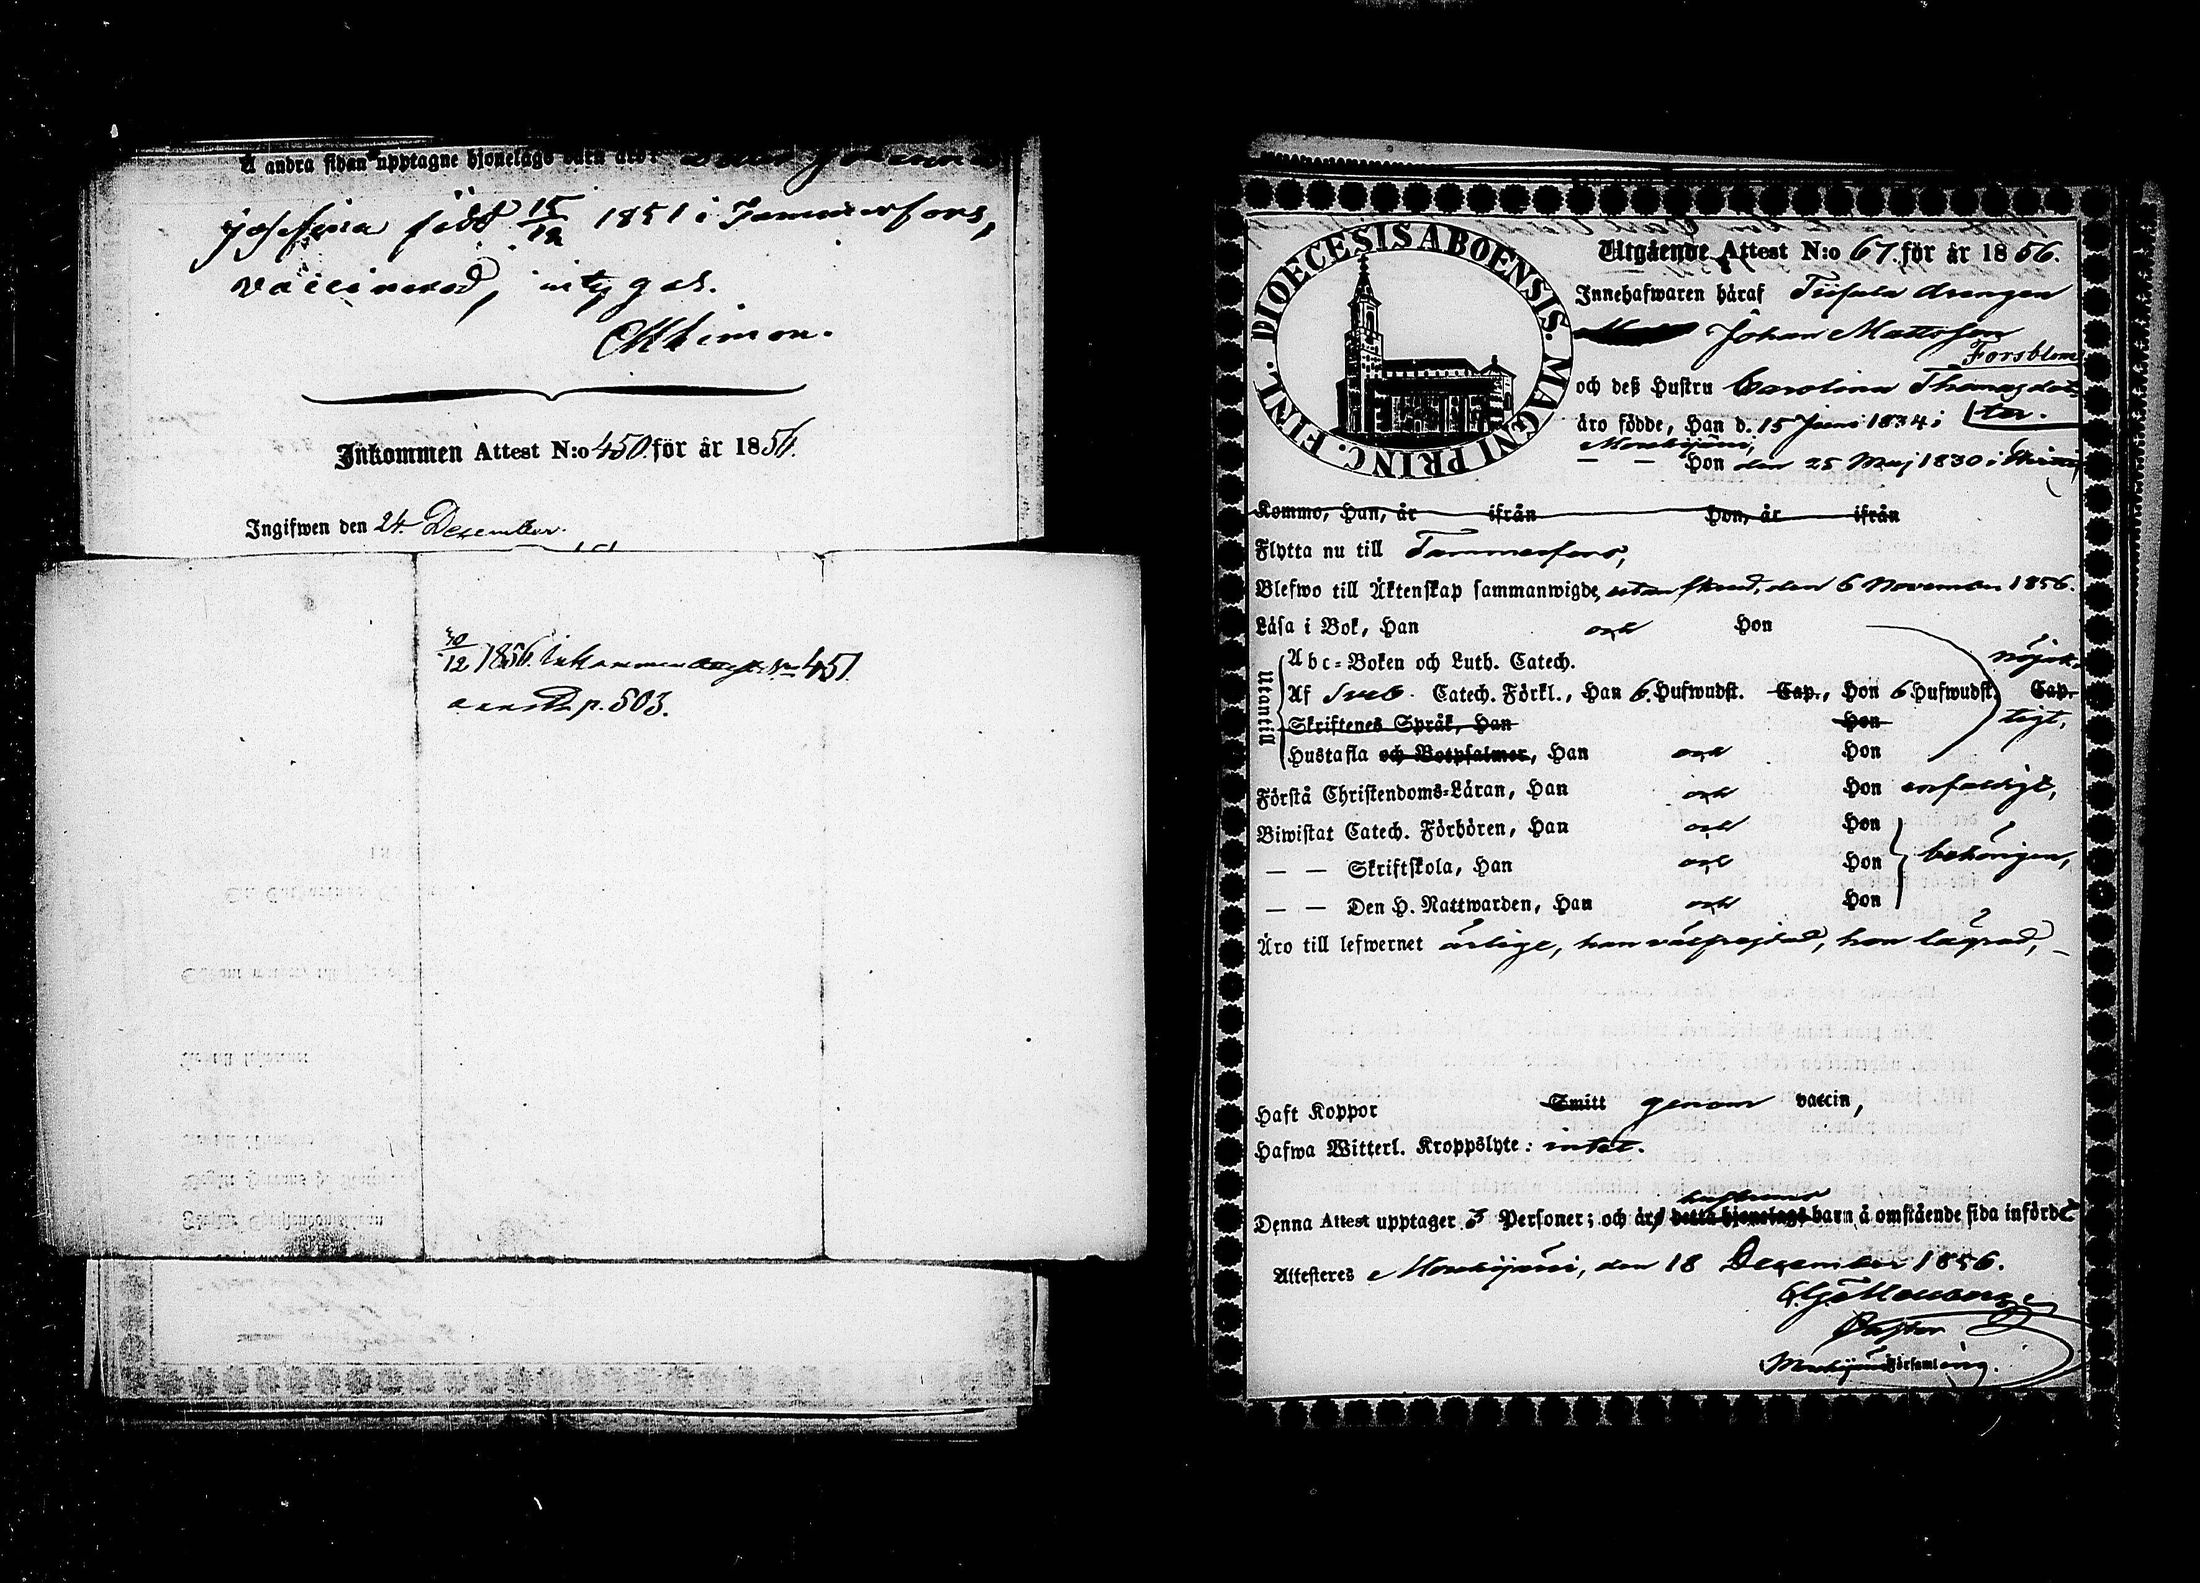 Å andra sidan upptagne hjonelags barn äro:
Josefina född 15/12 1851 i Tammerfors,
vaccinerad, intygar.
Inkommen Attest N:o 450. för år 1856.
Ingifwen den 24 December.
30/12 1856. Inkommen N:o 451.
p. 503.
DIOECESIS ABOENSIS. MAGNI PRINC. FINL.
Utgående Attest N:o 67. för år 1856.
Innehafwaren häraf drengen
Johan Mattsson
Forsblom
och deß Hustru Carolina Thomasdot-
ter.
äro födde, Han d. 15 Juni 1834 i
Mouhijärvi,
— — Hon den 25 Maj 1830 i
Kommo, Han, år ifrån Hon, år ifrån
Flytta nu till Tammerfors,
Blefwo till Äktenskap sammanwigde, utan skrud, den 6 November 1856.
Läsa i Bok, Han och Hon
nöjak-
Utantill
Abc-Boken och Luth. Catech.
Af Sveb. Catech. Förkl., Han 6. Hufwudst. Cap., Hon 6 Hufwudst. Cap.
Skriftenes Språk, Han Hon
tigt,
Hustafla och Botpsalmer, Han och Hon
Förstå Christendoms-Läran, Han och Hon enfaldigt,
Biwistat Catech. Förhören, Han och Hon
— — Skriftskola, Han och Hon behörigen,
— — Den H. Nattwarden, Han och Hon
Äro till lefwernet ärlige, han välfrejdad, hon lägrad, —
Haft Koppor Smitt genom vaccin,
Hafwa Witterl. Kroppslyte: intet.
hustruns
Denna Attest upptager 3 Personer; och äro detta hjonelags barn å omstående sida införde
Attesteres Mouhijärvi, den 18 December 1856.
Pastor
Mouhijärvi Församling.